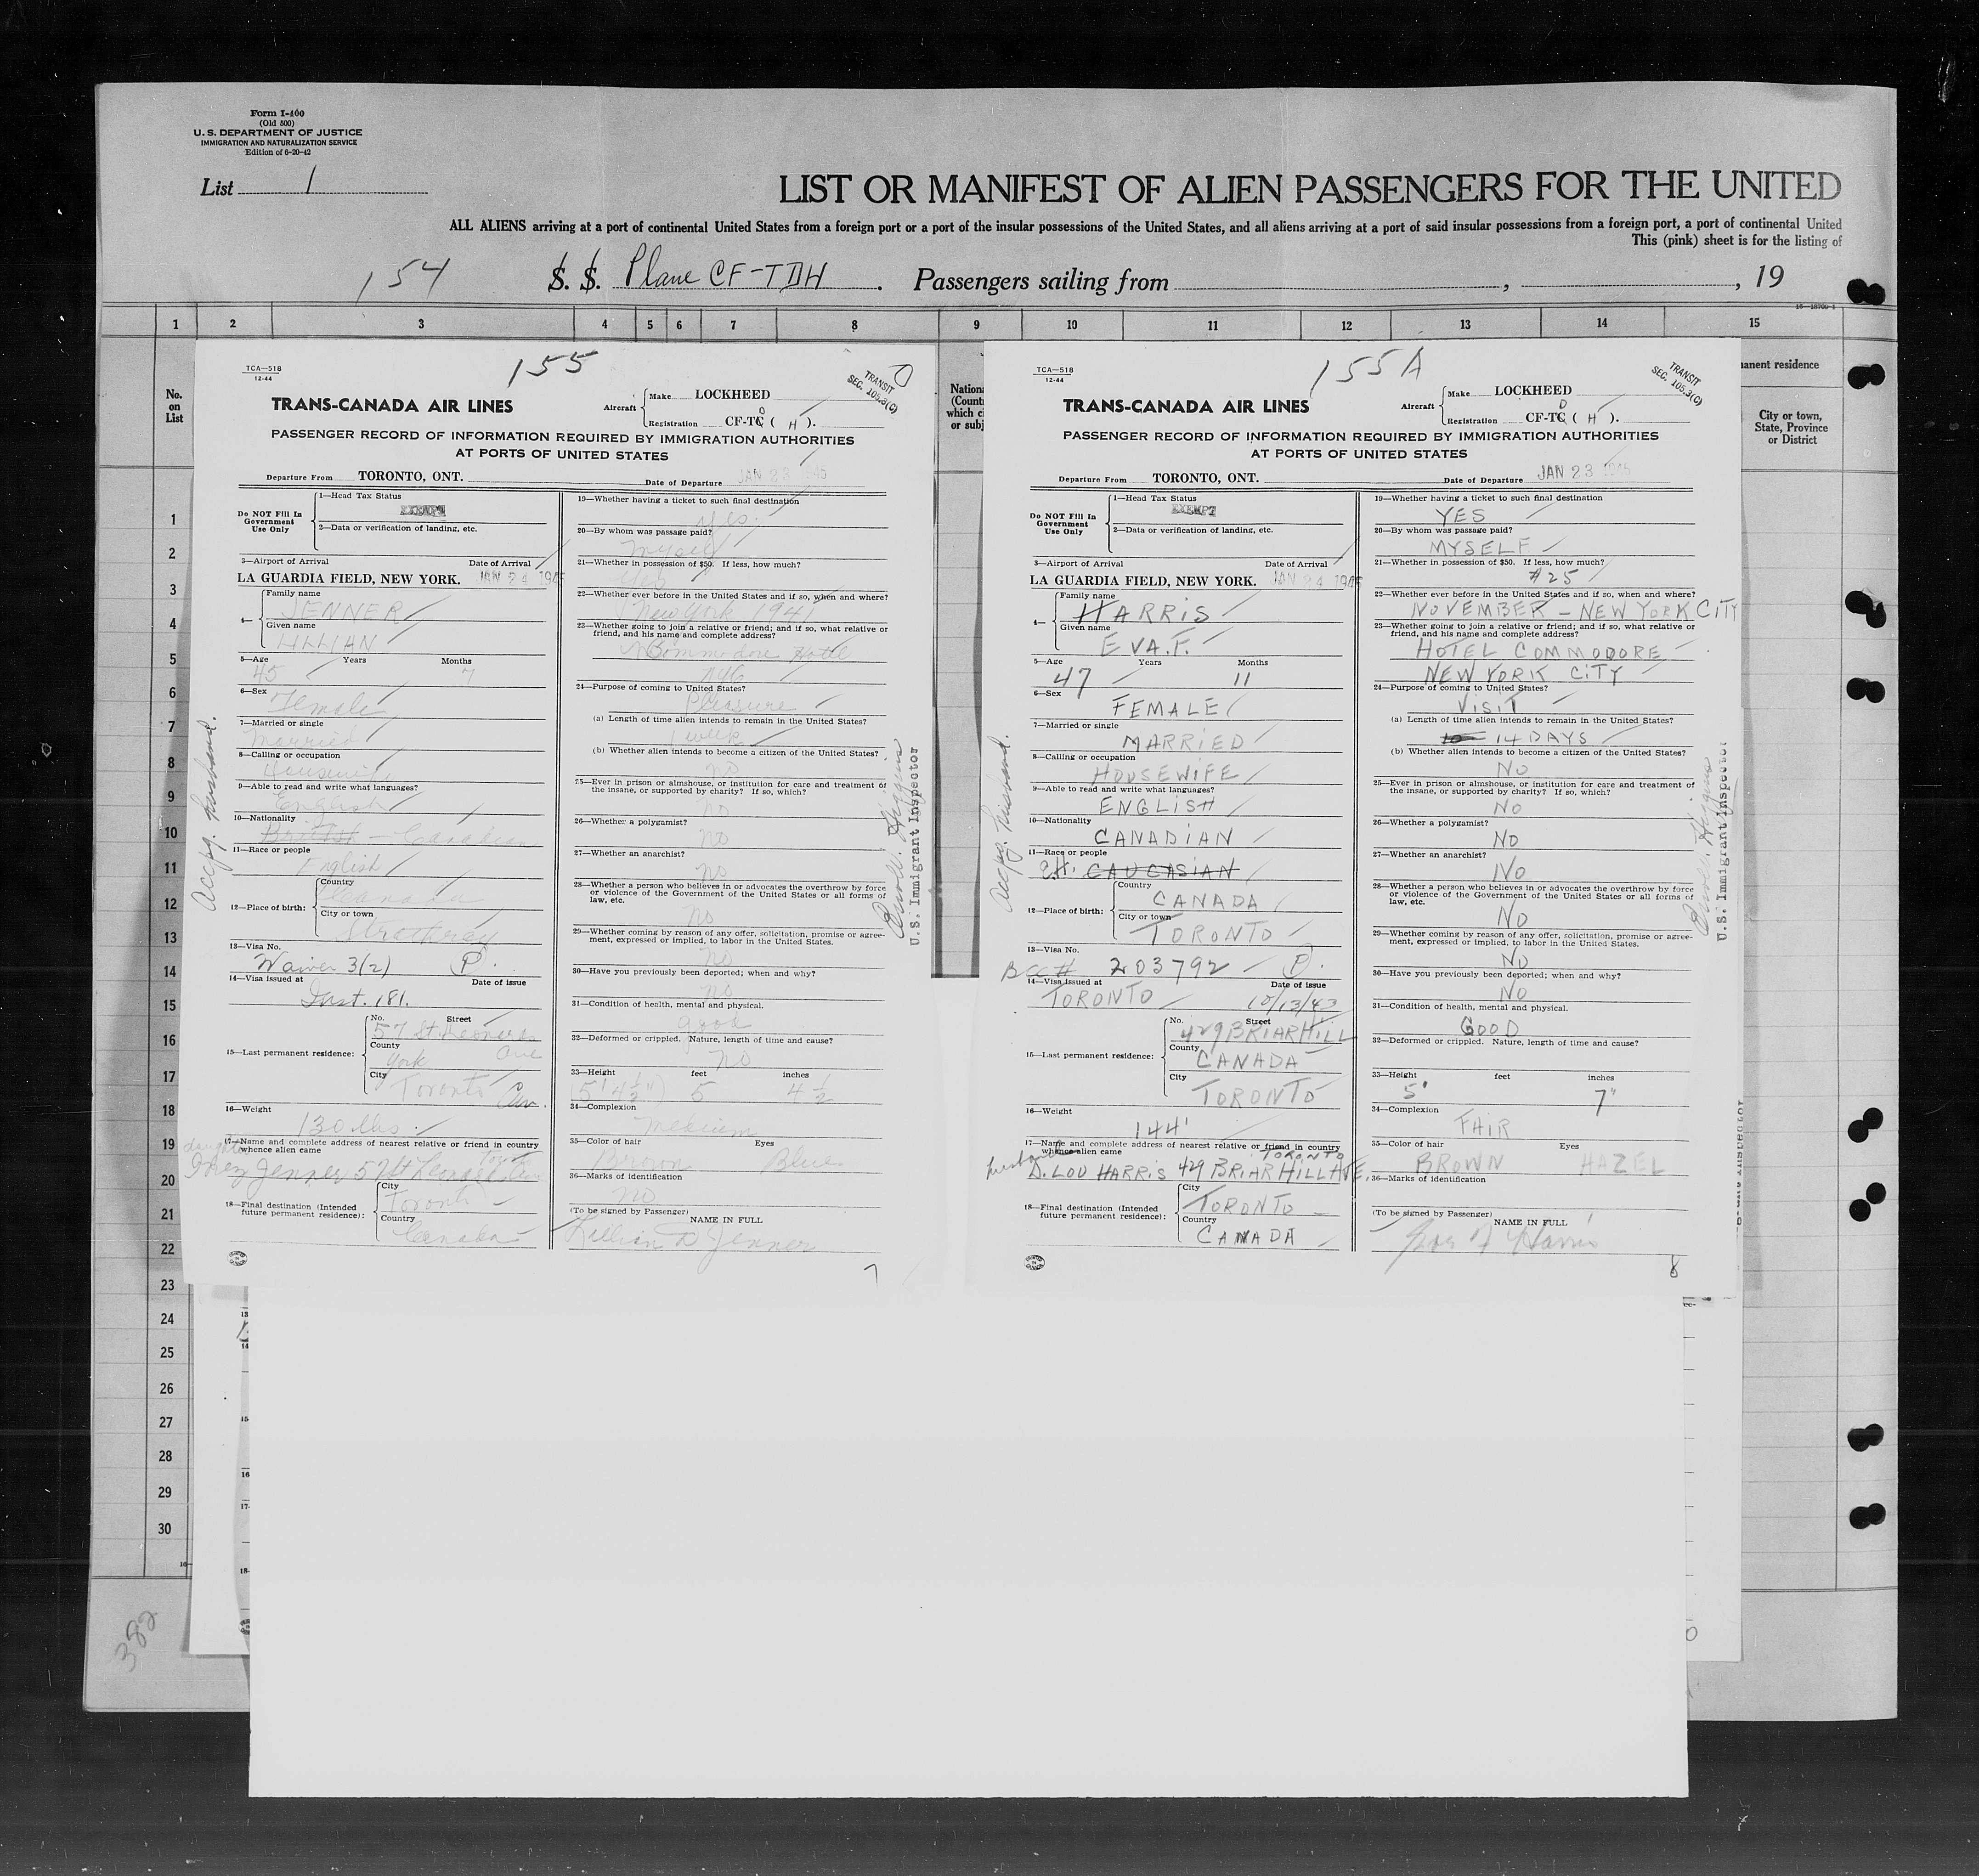 Form I-400
(Old 500)
U. S. DEPARTMENT OF JUSTICE
IMMIGRATION AND NATURALIZATION SERVICE
Edition of 6-20-42
List 1
LIST OR MANIFEST OF ALIEN PASSENGERS FOR THE UNITED
ALL ALIENS arriving at a port of continental United States from a foreign port or a port of the insular possessions of the United States, and all aliens arriving at a port of said insular possessions from a foreign port, a port of continental United
This (pink) sheet is for the listing of
154 S. S. Plane CF-TDH . Passengers sailing from , , 19
1 2 3 4 5 6 7 8 9 10 11 12 13 14 15
No. on List
1
2
3
4
5
6
7
8
9
10
11
12
13
14
15
16
17
18
19
20
21
22
23
24
25
26
27
28
29
30
382
155
TCA—518
12-44
TRANSIT
SEC. 105.3(C)
TRANS-CANADA AIR LINES
Aircraft
Make LOCKHEED
Registration CF-TC D ( H ).
PASSENGER RECORD OF INFORMATION REQUIRED BY IMMIGRATION AUTHORITIES
AT PORTS OF UNITED STATES
Departure From TORONTO, ONT. Date of Departure JAN 23 1945
Do NOT Fill In Government Use Only
1—Head Tax Status
EXEMPT
2—Data or verification of landing, etc.
3—Airport of Arrival Date of Arrival
LA GUARDIA FIELD, NEW YORK. JAN 24 1945
4—
Family name
JENNER
Given name
LILLIAN
5—Age Years Months
45 7
6—Sex
Female
7—Married or single
Married
8—Calling or occupation
Housewife
9—Able to read and write what languages?
English
10—Nationality
British — Canadian
11—Race or people
English
12—Place of birth:
Country
Canada
City or town
Strathroy
13—Visa No.
Waiver 3(2) P.
14—Visa issued at Date of issue
Inst. 181.
15—Last permanent residence:
No. Street
57 St. Leonards
Ave
County
York
City
Toronto Can.
16—Weight
130 lbs.
17—Name and complete address of nearest relative or friend in country whence alien came
daughter
Inez Jenner 57 St Leonards
Toronto
18—Final destination (Intended future permanent residence):
City
Toronto
Country
Canada
19—Whether having a ticket to such final destination
yes.
20—By whom was passage paid?
myself
21—Whether in possession of $50. If less, how much?
Yes
22—Whether ever before in the United States and if so, when and where?
New York 1941
23—Whether going to join a relative or friend; and if so, what relative or friend, and his name and complete address?
Commodore Hotel
NYC
24—Purpose of coming to United States?
Pleasure
(a) Length of time alien intends to remain in the United States?
1 week
(b) Whether alien intends to become a citizen of the United States?
no
25—Ever in prison or almshouse, or institution for care and treatment of the insane, or supported by charity? If so, which?
no
26—Whether a polygamist?
no
27—Whether an anarchist?
no
28—Whether a person who believes in or advocates the overthrow by force or violence of the Government of the United States or all forms of law, etc.
no
29—Whether coming by reason of any offer, solicitation, promise or agreement, expressed or implied, to labor in the United States.
no
30—Have you previously been deported; when and why?
no
31—Condition of health, mental and physical.
good
32—Deformed or crippled. Nature, length of time and cause?
no
33—Height feet inches
(5' 4½") 5 4½
34—Complexion
Medium
35—Color of hair Eyes
Brown Blue
36—Marks of identification
no
(To be signed by Passenger) NAME IN FULL
Lillian D Jenner
7
Accpg. husband.
U.S. Immigrant Inspector
Nationality (Country of which citizen or subject)
155A
TCA—518
12-44
TRANSIT
SEC. 105.3(C)
TRANS-CANADA AIR LINES
Aircraft
Make LOCKHEED
Registration CF-TC D ( H ).
PASSENGER RECORD OF INFORMATION REQUIRED BY IMMIGRATION AUTHORITIES
AT PORTS OF UNITED STATES
Departure From TORONTO, ONT. Date of Departure JAN 23 1945
Do NOT Fill In Government Use Only
1—Head Tax Status
EXEMPT
2—Data or verification of landing, etc.
3—Airport of Arrival Date of Arrival
LA GUARDIA FIELD, NEW YORK. JAN 24 1945
4—
Family name
HARRIS
Given name
EVA. F.
5—Age Years Months
47 11
6—Sex
FEMALE
7—Married or single
MARRIED
8—Calling or occupation
HOUSEWIFE
9—Able to read and write what languages?
ENGLISH
10—Nationality
CANADIAN
11—Race or people
CAUCASIAN
12—Place of birth:
Country
CANADA
City or town
TORONTO
13—Visa No.
BCC # 203792 P.
14—Visa issued at Date of issue
TORONTO 10/13/43
15—Last permanent residence:
No. Street
429 BRIAR HILL
County
CANADA
City
TORONTO
16—Weight
144
17—Name and complete address of nearest relative or friend in country whence alien came
husband TORONTO
D. LOU HARRIS 429 BRIAR HILL AVE.
18—Final destination (Intended future permanent residence):
City
TORONTO
Country
CANADA
19—Whether having a ticket to such final destination
YES
20—By whom was passage paid?
MYSELF
21—Whether in possession of $50. If less, how much?
$25
22—Whether ever before in the United States and if so, when and where?
NOVEMBER - NEW YORK CITY
23—Whether going to join a relative or friend; and if so, what relative or friend, and his name and complete address?
HOTEL COMMODORE
NEW YORK CITY
24—Purpose of coming to United States?
VISIT
(a) Length of time alien intends to remain in the United States?
10 14 DAYS
(b) Whether alien intends to become a citizen of the United States?
NO
25—Ever in prison or almshouse, or institution for care and treatment of the insane, or supported by charity? If so, which?
NO
26—Whether a polygamist?
NO
27—Whether an anarchist?
NO
28—Whether a person who believes in or advocates the overthrow by force or violence of the Government of the United States or all forms of law, etc.
NO
29—Whether coming by reason of any offer, solicitation, promise or agreement, expressed or implied, to labor in the United States.
NO
30—Have you previously been deported; when and why?
NO
31—Condition of health, mental and physical.
GOOD
32—Deformed or crippled. Nature, length of time and cause?
33—Height feet inches
5' 7"
34—Complexion
FAIR
35—Color of hair Eyes
BROWN HAZEL
36—Marks of identification
(To be signed by Passenger) NAME IN FULL
Eva F Harris
8
Accpg. husband.
U.S. Immigrant Inspector
manent residence
City or town, State, Province or District